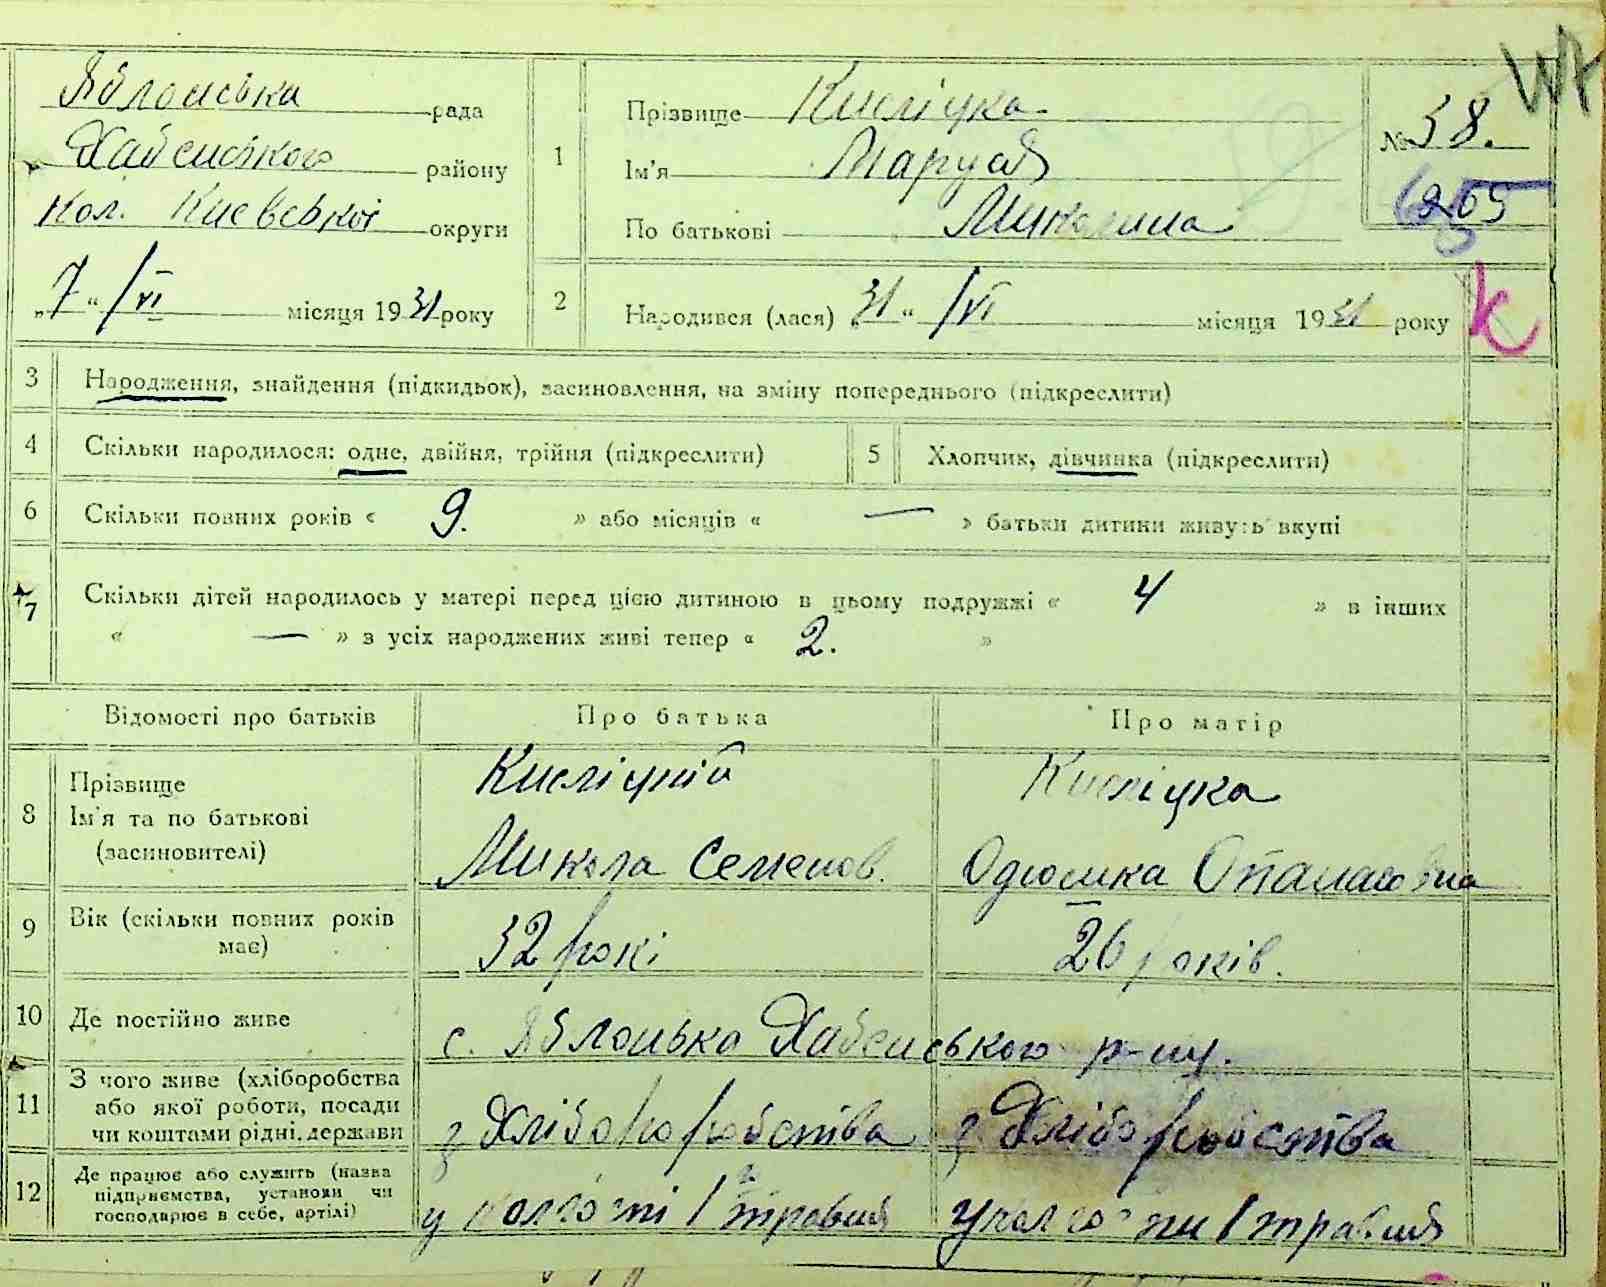 Яблонська рада
Хабенського району
Кол. Києвської округи
„7“ /VI місяця 1931 року
1
Прізвище Кисліцка
Ім'я Маруся
По батькові Миколаівна
№ 38.
2
Народився (лася) „31“ /VI місяця 1931 року
К
3 Народження, знайдення (підкидьок), засиновлення, на зміну попереднього (підкреслити)
4 Скільки народилося: одне, двійня, трійня (підкреслити)
5 Хлопчик, дівчинка (підкреслити)
6 Скільки повних років « 9. » або місяців « — » батьки дитини живуть вкупі
7 Скільки дітей народилось у матері перед цією дитиною в цьому подружжі « 4 » в інших
« — » з усіх народжених живі тепер « 2. »
Відомості про батьків
Про батька
Про матір
8
Прізвище
Ім'я та по батькові
(засиновителі)
Кисліцкій
Микола Семенов.
Кисліцка
Одюшка Опанасовна
9
Вік (скільки повних років
має)
32 рокі
26 років.
10 Де постійно живе
с. Яблонька Хабенського р-ну.
11
З чого живе (хліборобства
або якої роботи, посади
чи коштами рідні, держави
з Хліборобства
з Хліборобства
12
Де працює або служить (назва
підприємства, установи чи
господарює в себе, артілі)
у колгоспі 1 травня
у колгоспи 1 травня